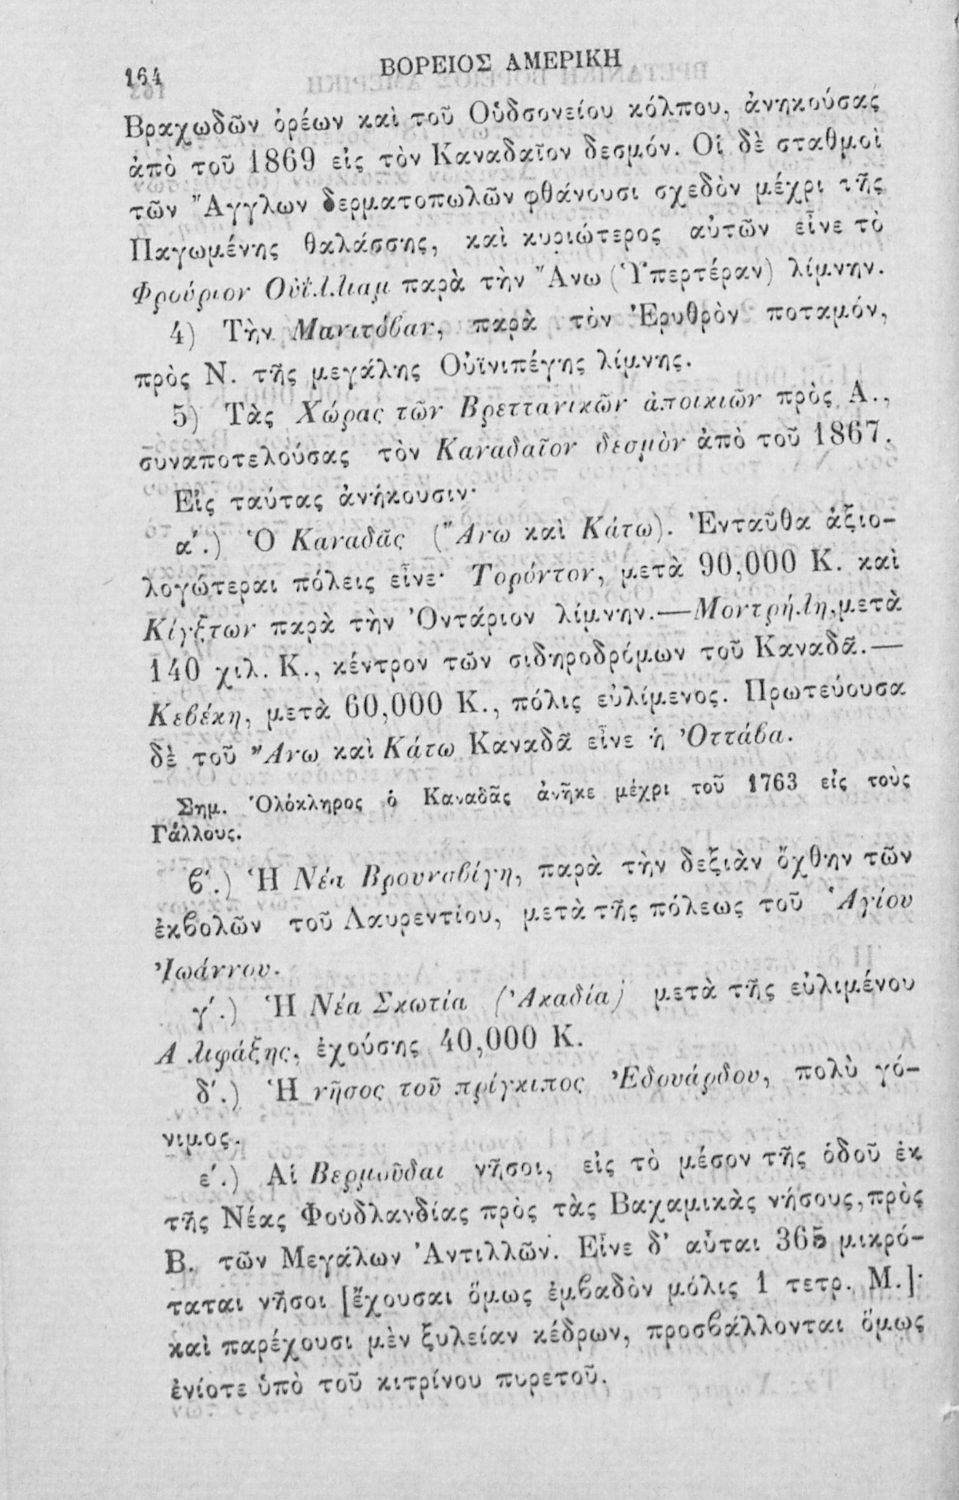 164 ΒΟΡΕΙΟΣ ΑΜΕΡΙΚΗ
Βραχωδῶν ὀρέων καὶ τοῦ Οὑδσονείου κόλπου, ἀνηκούσας
ἀπὸ τοῦ 1869 εἰς τὸν Καναδαῖον δεσμόν. Οἱ δὲ σταθμοὶ
τῶν Ἄγγλων δερματοπωλῶν φθάνουσι σχεδὸν μέχρι τῆς
Παγωμένης θαλάσσης, καὶ κυριώτερος αὐτῶν εἶνε τὸ
Φρούριον Οὐΐλλιαμ παρὰ τὴν Ἄνω (Ὑπερτέραν) λίμνην.
4) Τὴν Μανιτόβαν, παρὰ τὸν Ἐρυθρὸν ποταμόν,
πρὸς Ν. τῆς μεγάλης Οὐϊνιπέγης λίμνης.
5) Τὰς Χώρας τῶν Βρεττανικῶν ἀποικιῶν πρὸς Α.,
συναποτελούσας τὸν Καναδαῖον δεσμὸν ἀπὸ τοῦ 1867.
Εἰς ταύτας ἀνήκουσιν·
α΄.) Ὁ Καναδᾶς (Ἄνω καὶ Κάτω). Ἐνταῦθα ἀξιο-
λογώτεραι πόλεις εἶνε· Τορόντον, μετὰ 90,000 Κ. καὶ
Κίγξτων παρὰ τὴν Ὀντάριον λίμνην.—Μοντρήλη, μετὰ
140 χιλ. Κ., κέντρον τῶν σιδηροδρόμων τοῦ Καναδᾶ.—
Κεβέκη, μετὰ 60,000 Κ., πόλις εὐλίμενος. Πρωτεύουσα
δὲ τοῦ Ἄνω καὶ Κάτω Καναδᾶ εἶνε ἡ Ὀττάβα.
Σημ. Ὁλόκληρος ὁ Καναδᾶς ἀνῆκε μέχρι τοῦ 1763 εἰς τοὺς
Γάλλους.
β΄.) Ἡ Νέα Βρουνσβίγη, παρὰ τὴν δεξιὰν ὄχθην τῶν
ἐκβολῶν τοῦ Λαυρεντίου, μετὰ τῆς πόλεως τοῦ Ἁγίου
Ἰωάννου.
γ΄.) Ἡ Νέα Σκωτία (Ἀκαδία) μετὰ τῆς εὐλιμένου
Ἀλιφάξης, ἐχούσης 40,000 Κ.
δ΄.) Ἡ νῆσος τοῦ πρίγκιπος Ἐδουάρδου, πολὺ γό-
νιμος.
ε΄.) Αἱ Βερμοῦδαι νῆσοι, εἰς τὸ μέσον τῆς ὁδοῦ ἐκ
τῆς Νέας Φουδλανδίας πρὸς τὰς Βαχαμικὰς νήσους, πρὸς
Β. τῶν Μεγάλων Ἀντιλλῶν. Εἶνε δ' αὗται 365 μικρό-
ταται νῆσοι [ἔχουσαι ὅμως ἐμβαδὸν μόλις 1 τετρ. Μ.]·
καὶ παρέχουσι μὲν ξυλείαν κέδρων, προσβάλλονται ὅμως
ἐνίοτε ὑπὸ τοῦ κιτρίνου πυρετοῦ.